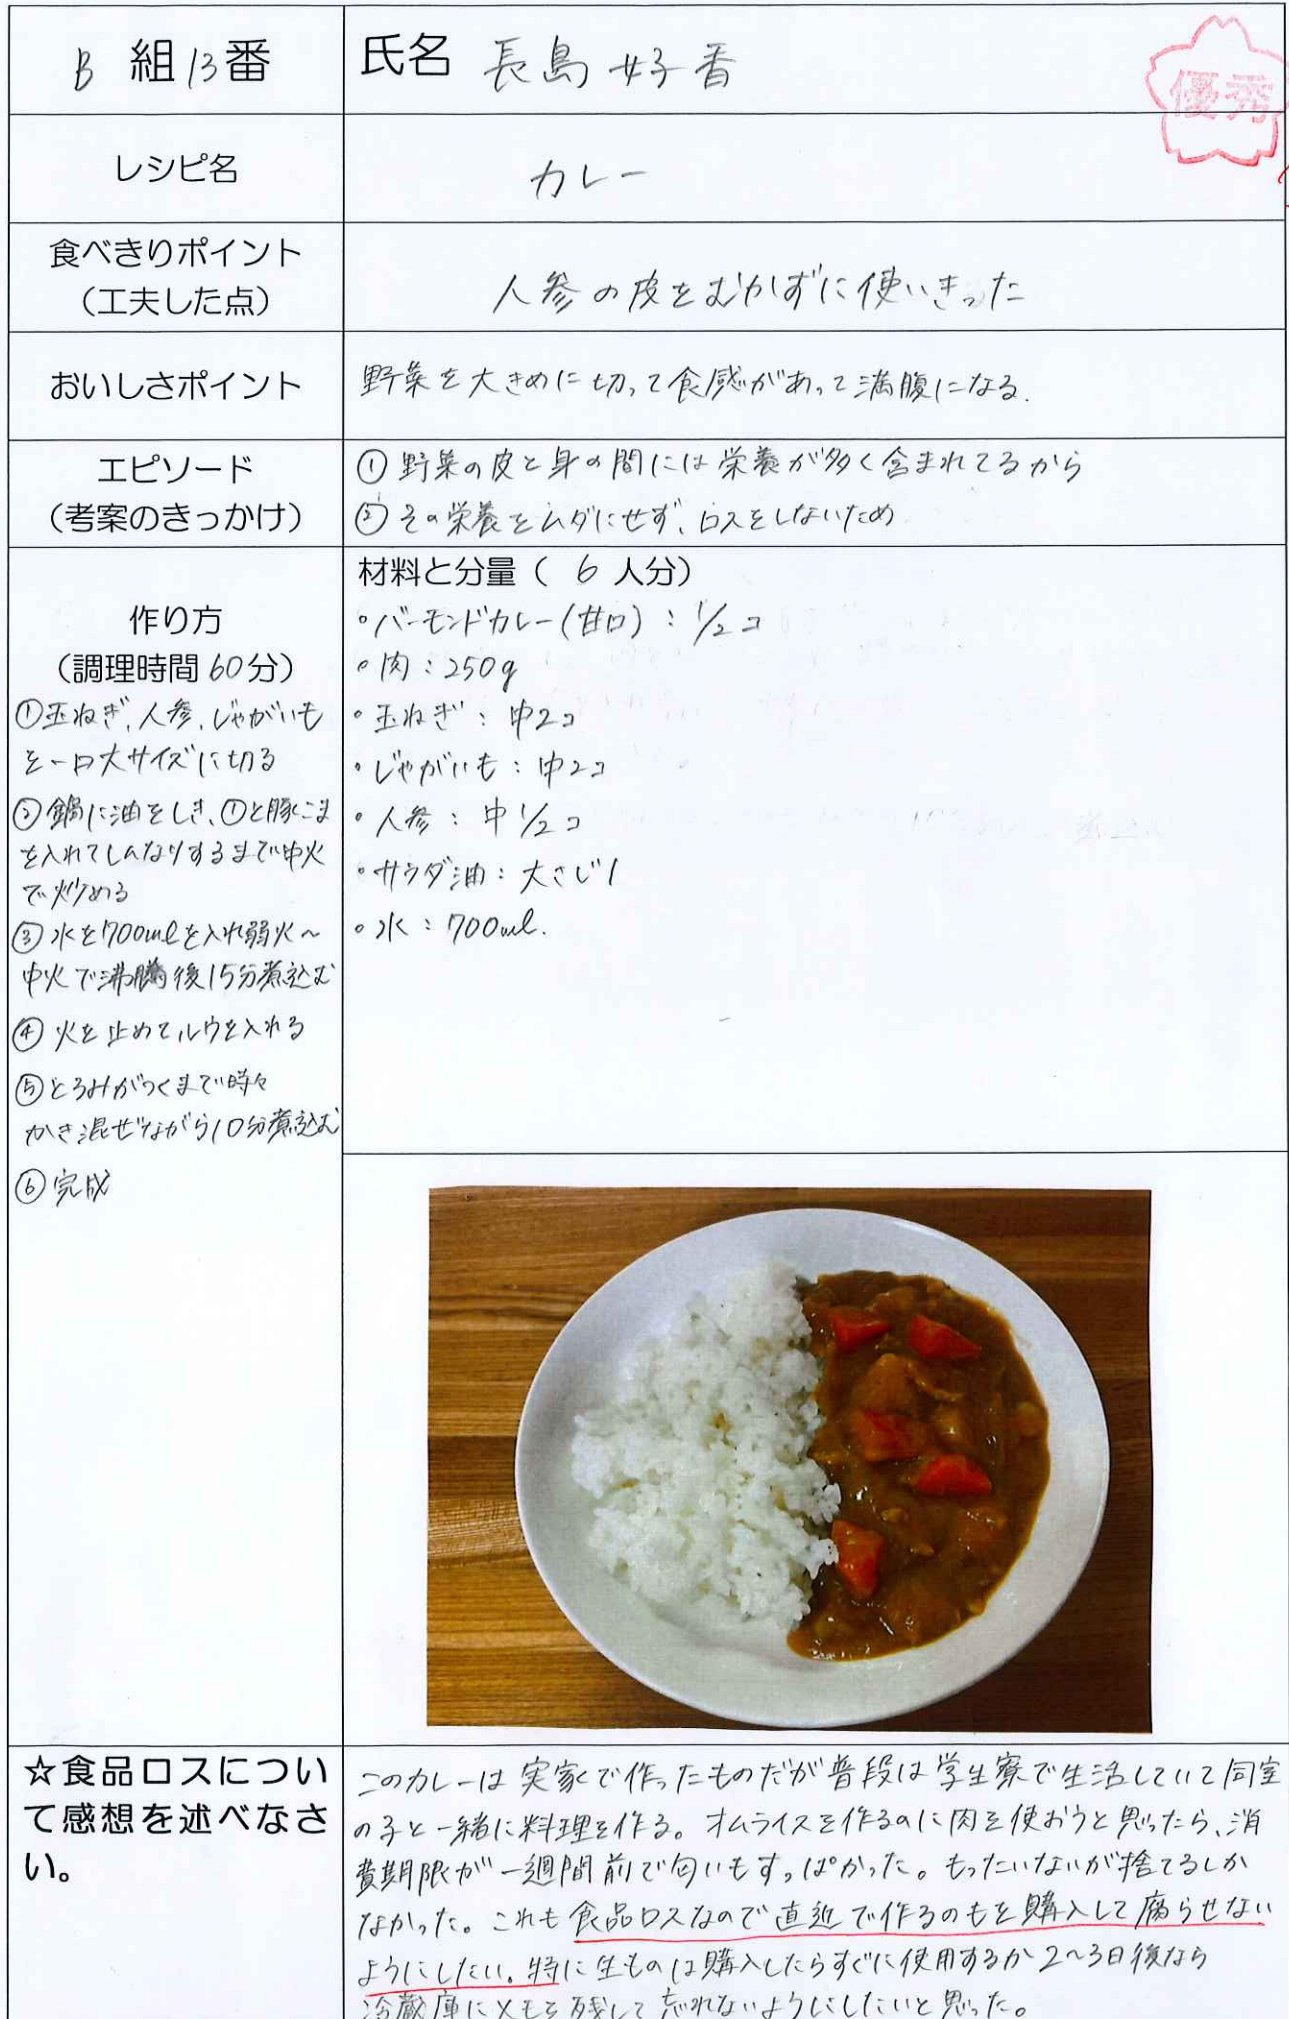 B 組 13番
氏名 長島 好香
優秀
レシピ名
カレー
食べきりポイント
（工夫した点）
人参の皮をむかずに使いきった
おいしさポイント
野菜を大きめに切って食感があって満腹になる.
エピソード
（考案のきっかけ）
①野菜の皮と身の間には栄養が多く含まれてるから
②その栄養をムダにせず、ロスをしないため
作り方
（調理時間60分）
①玉ねぎ、人参、じゃがいも
を一口大サイズに切る
②鍋に油をしき、①と豚こま
を入れてしんなりするまで中火
で炒める
③水を700mlを入れ弱火～
中火で沸騰後15分煮込む
④火を止めてルウを入れる
⑤とろみがつくまで時々
かき混ぜながら10分煮込む
⑥完成
材料と分量（ 6 人分）
・バーモンドカレー(甘口)：1/2コ
・肉：250g
・玉ねぎ：中2コ
・じゃがいも：中2コ
・人参：中1/2コ
・サラダ油：大さじ1
・水：700ml.
☆食品ロスについ
て感想を述べなさ
い。
このカレーは実家で作ったものだが普段は学生寮で生活していて同室
の子と一緒に料理を作る。オムライスを作るのに肉を使おうと思ったら、消
費期限が一週間前で匂いもすっぱかった。もったいないが捨てるしか
なかった。これも食品ロスなので直近で作るのもを購入して腐らせない
ようにしたい。特に生ものは購入したらすぐに使用するか2～3日後なら
冷蔵庫にメモを残して忘れないようにしたいと思った。